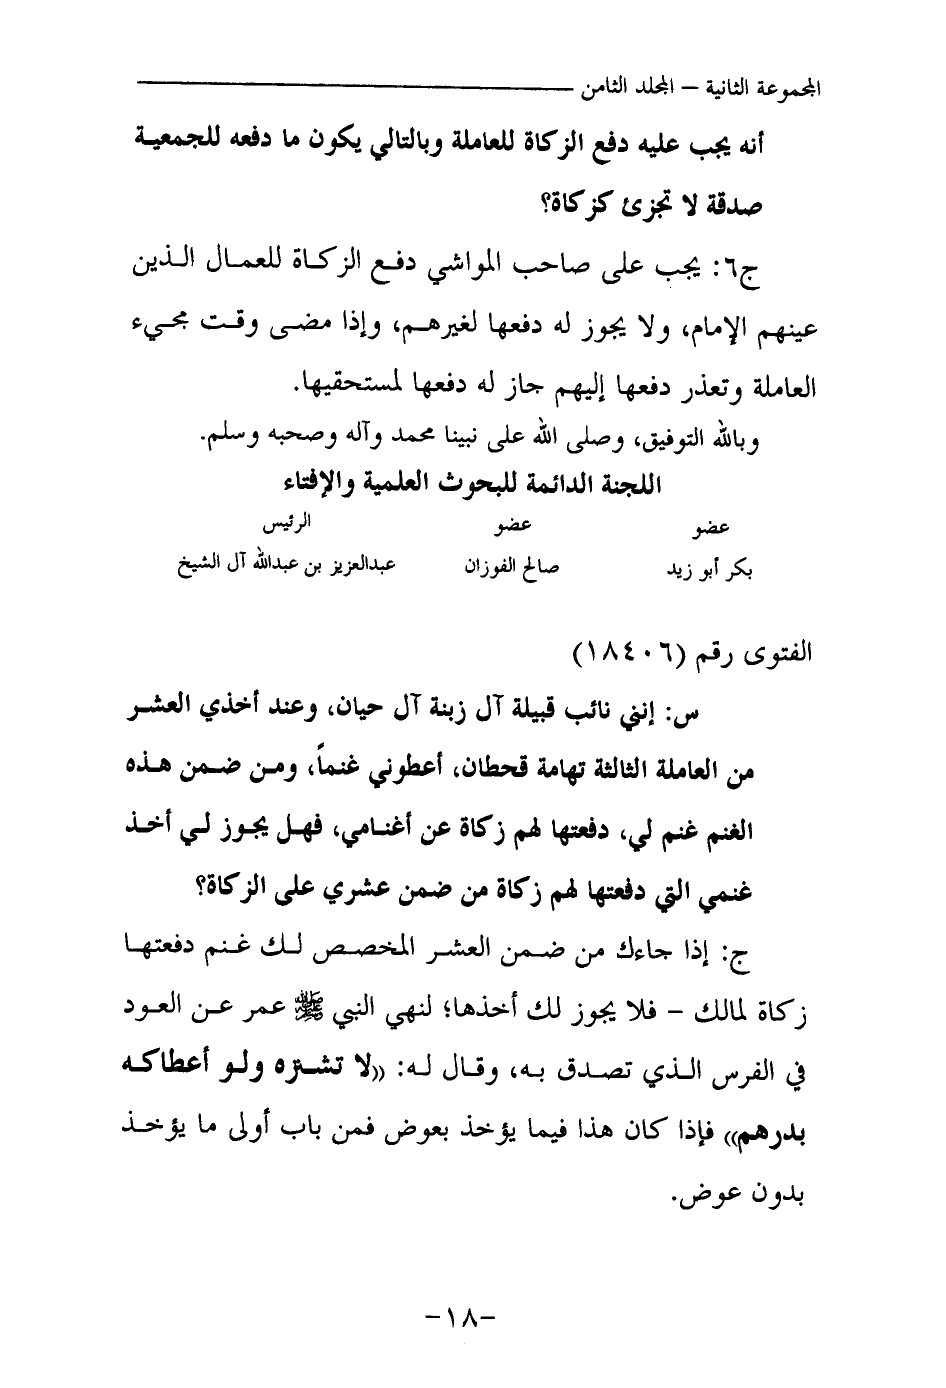 المجموعة الثانية – المجلد الثامن
أنه يجب عليه دفع الزكاة للعاملة وبالتالي يكون ما دفعه للجمعية
صدقة لا تجزئ كزكاة؟
ج٦: يجب على صاحب المواشي دفع الزكاة للعمال الذين
عينهم الإمام، ولا يجوز له دفعها لغيرهم، وإذا مضى وقت مجيء
العاملة وتعذر دفعها إليهم جاز له دفعها لمستحقيها.
وبالله التوفيق، وصلى الله على نبينا محمد وآله وصحبه وسلم.
اللجنة الدائمة للبحوث العلمية والإفتاء
عضو عضو الرئيس
بكر أبو زيد صالح الفوزان عبدالعزيز بن عبدالله آل الشيخ
الفتوى رقم (١٨٤٠٦)
س: إنني نائب قبيلة آل زبنة آل حيان، وعند أخذي العشر
من العاملة الثالثة تهامة قحطان، أعطوني غنماً، ومن ضمن هذه
الغنم غنم لي، دفعتها لهم زكاة عن أغنامي، فهل يجوز لي أخذ
غنمي التي دفعتها لهم زكاة من ضمن عشري على الزكاة؟
ج: إذا جاءك من ضمن العشر المخصص لك غنم دفعتها
زكاة لمالك – فلا يجوز لك أخذها؛ لنهي النبي ﷺ عمر عن العود
في الفرس الذي تصدق به، وقال له: ((لا تشتره ولو أعطاكه
بدرهم)) فإذا كان هذا فيما يؤخذ بعوض فمن باب أولى ما يؤخذ
بدون عوض.
-١٨-